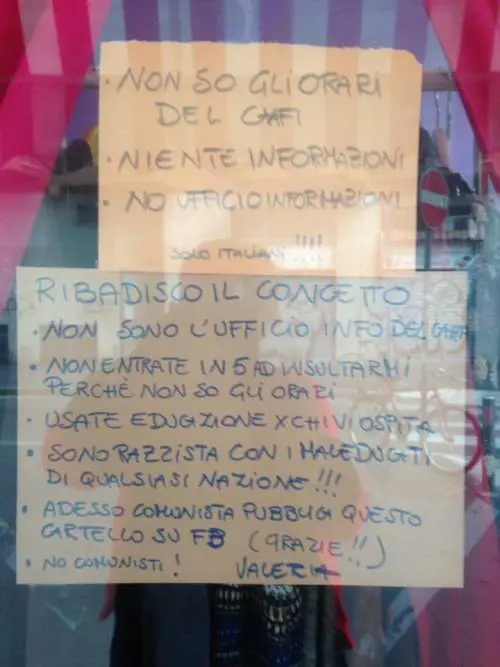 · NON SO GLI ORARI
DEL GAFI
· NIENTE INFORMAZIONI
· NO UFFICIO INFORMAZIONI
SOLO ITALIANI!!!!
RIBADISCO IL CONCETTO
· NON SONO L'UFFICIO INFO DEL GAFI
· NON ENTRATE IN 5 AD INSULTARMI
PERCHÈ NON SO GLI ORARI
· USATE EDUCAZIONE X CHI VI OSPITA
· SONO RAZZISTA CON I MALEDUCATI
DI QUALSIASI NAZIONE!!!
· ADESSO COMUNISTA PUBBLICA QUESTO
CARTELLO SU FB (GRAZIE!!)
· NO COMUNISTI! VALERIA